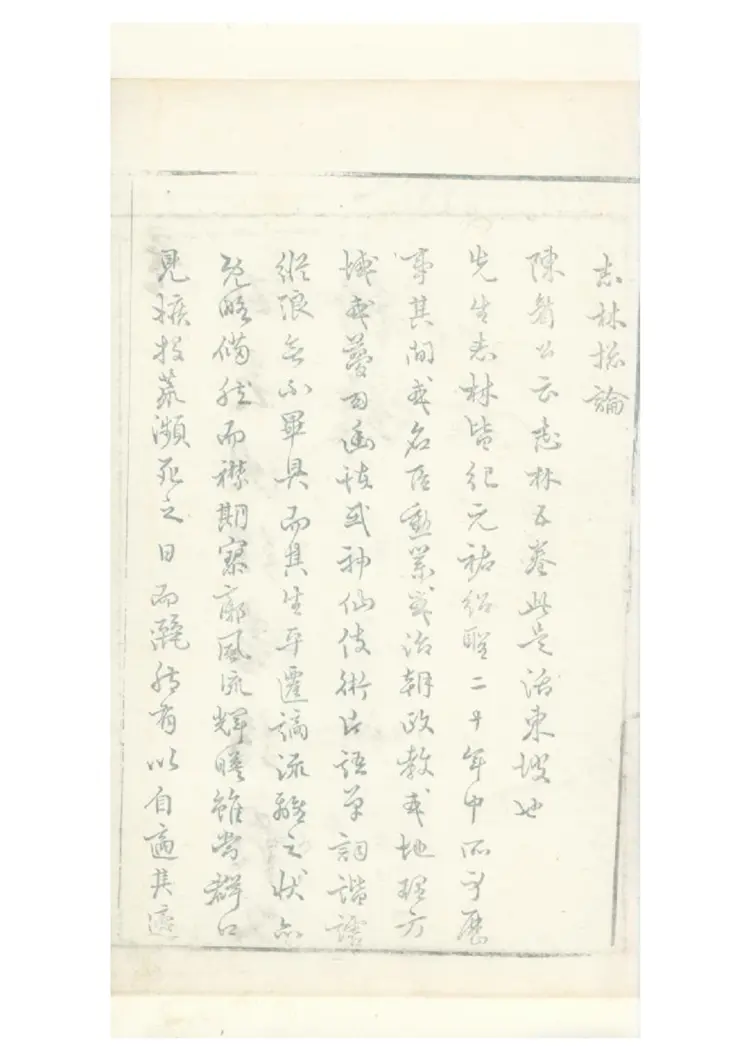 志林總論
陳眉公云志林五卷此是活東坡也
先生志林皆紀元祐紹聖二十年中所身歷
事其間或名臣勳業或治朝政教或地理方
域或夢寐幽怪或神仙伎術片語單詞諧謔
縱浪無不畢具而其生平遷謫流離之狀亦
既略備然而襟期寥廓風流輝暎雖當群口
見嫉投荒瀕死之日而灑然有以自適其適